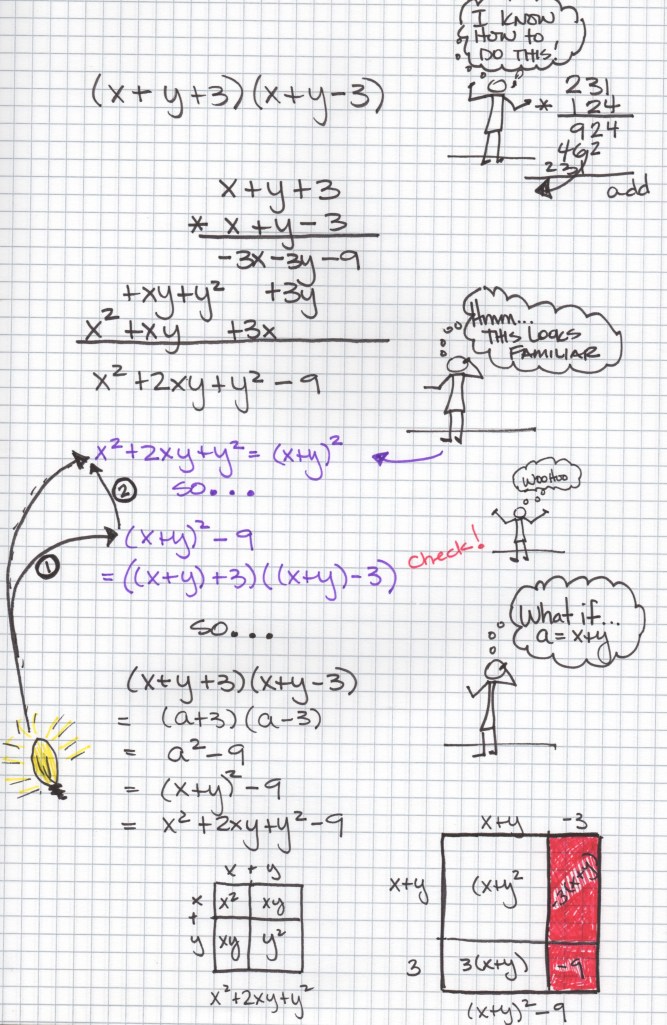 I KNOW
HOW to
DO THIS!
(x+y+3)(x+y-3)
231
* 124
924
462
231
add
x+y+3
* x+y-3
-3x-3y-9
+xy+y² +3y
x²+xy +3x
x²+2xy+y²-9
Hmm...
THIS LOOKS
FAMILIAR
x²+2xy+y²=(x+y)²
so...
②
WOOHOO
(x+y)²-9
check!
①
=((x+y)+3)((x+y)-3)
so...
What if...
a=x+y
(x+y+3)(x+y-3)
= (a+3)(a-3)
= a²-9
= (x+y)²-9
= x²+2xy+y²-9
x + y
x x² xy
+
y xy y²
x²+2xy+y²
x+y -3
x+y (x+y² -3(x+y)
3 3(x+y) -9
(x+y)²-9